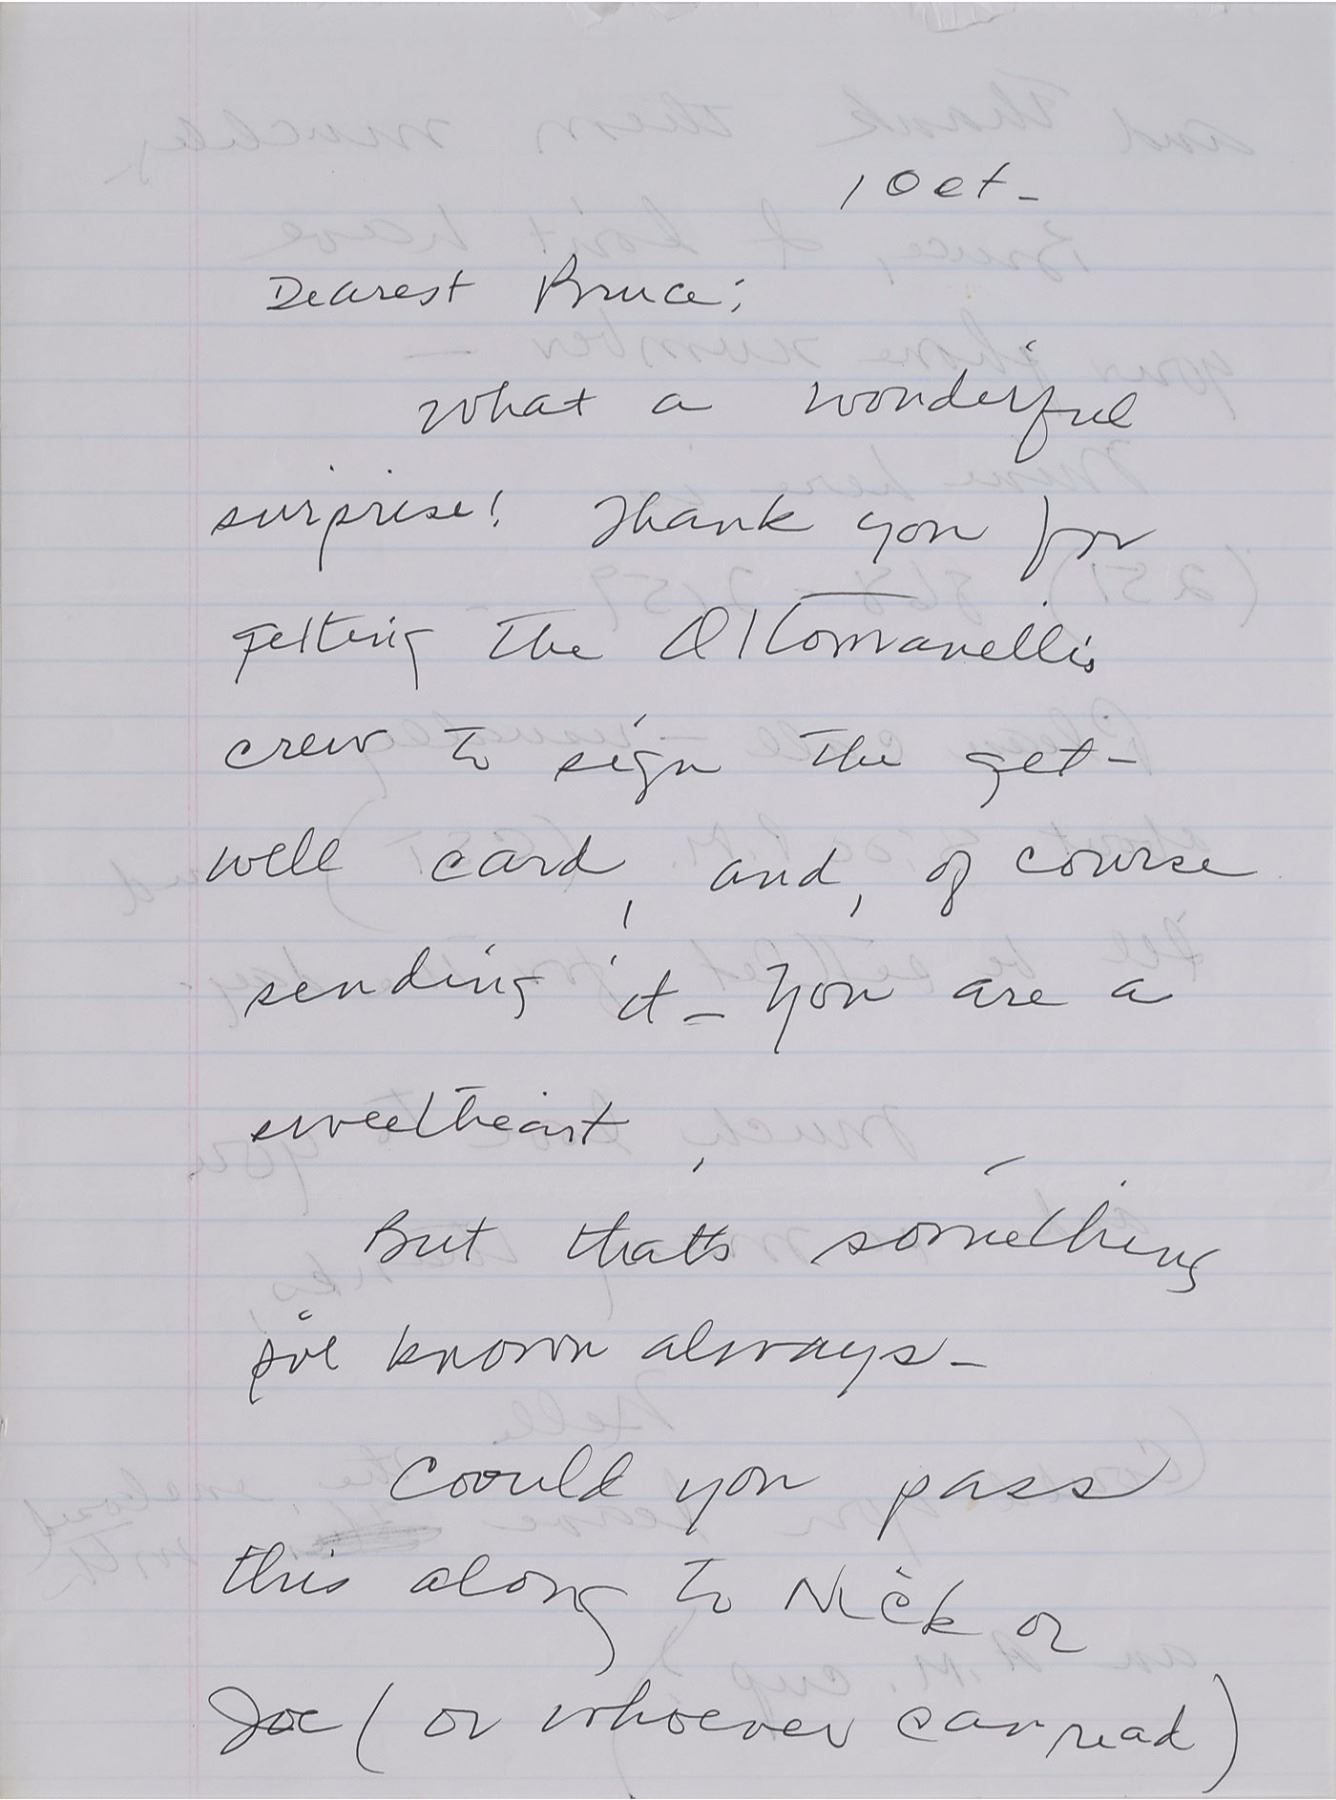 1 Oct -
Dearest Bruce:
What a wonderful
surprise! Thank you for
getting the Ottomanelli's
crew to sign the get-
well card, and, of course
sending it - You are a
sweetheart,
But that's something
I've known always -
Could you pass
this along to Nick or
Joe (or whoever can read)